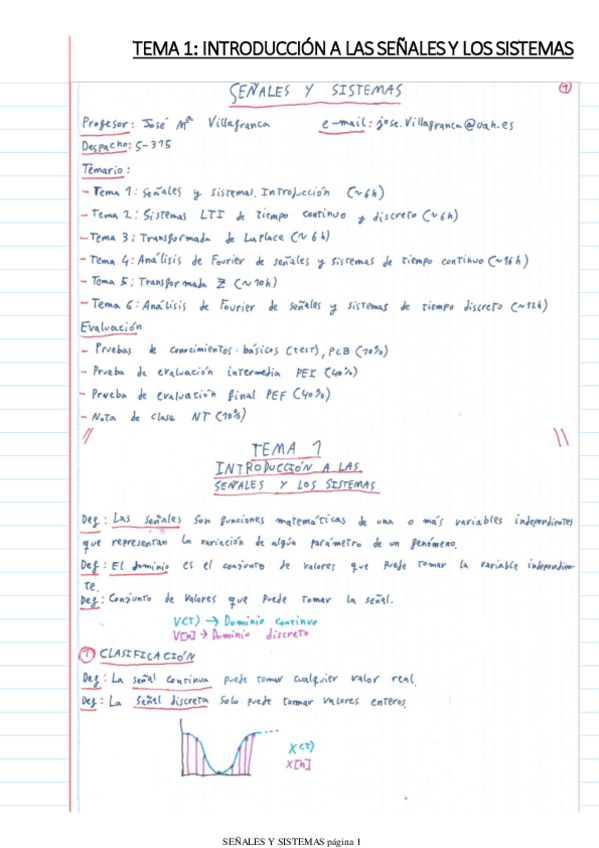 TEMA 1: INTRODUCCIÓN A LAS SEÑALES Y LOS SISTEMAS
SEÑALES Y SISTEMAS
1
Profesor: José Mª Villafranca e-mail: jose.villafranca@uah.es
Despacho: S-315
Temario:
- Tema 1: Señales y sistemas. Introducción (~6h)
- Tema 2: Sistemas LTI de tiempo continuo y discreto (~6h)
- Tema 3: Transformada de Laplace (~6h)
- Tema 4: Análisis de Fourier de señales y sistemas de tiempo continuo (~16h)
- Tema 5: Transformada Z (~10h)
- Tema 6: Análisis de Fourier de señales y sistemas de tiempo discreto (~12h)
Evaluación
- Pruebas de conocimientos básicos (test), PCB (10%)
- Prueba de evaluación intermedia PEI (40%)
- Prueba de evaluación final PEF (40%)
- Nota de clase NT (10%)
TEMA 1
INTRODUCCIÓN A LAS
SEÑALES Y LOS SISTEMAS
Def: Las señales son funciones matemáticas de una o más variables independientes
que representan la variación de algún parámetro de un fenómeno.
Def: El dominio es el conjunto de valores que puede tomar la variable independien-
te.
Def: Conjunto de valores que puede tomar la señal.
V(t) → Dominio continuo
V[n] → Dominio discreto
1 CLASIFICACIÓN
Def: La señal continua puede tomar cualquier valor real.
Def: La señal discreta solo puede tomar valores enteros.
X(t)
X[n]
SEÑALES Y SISTEMAS página 1